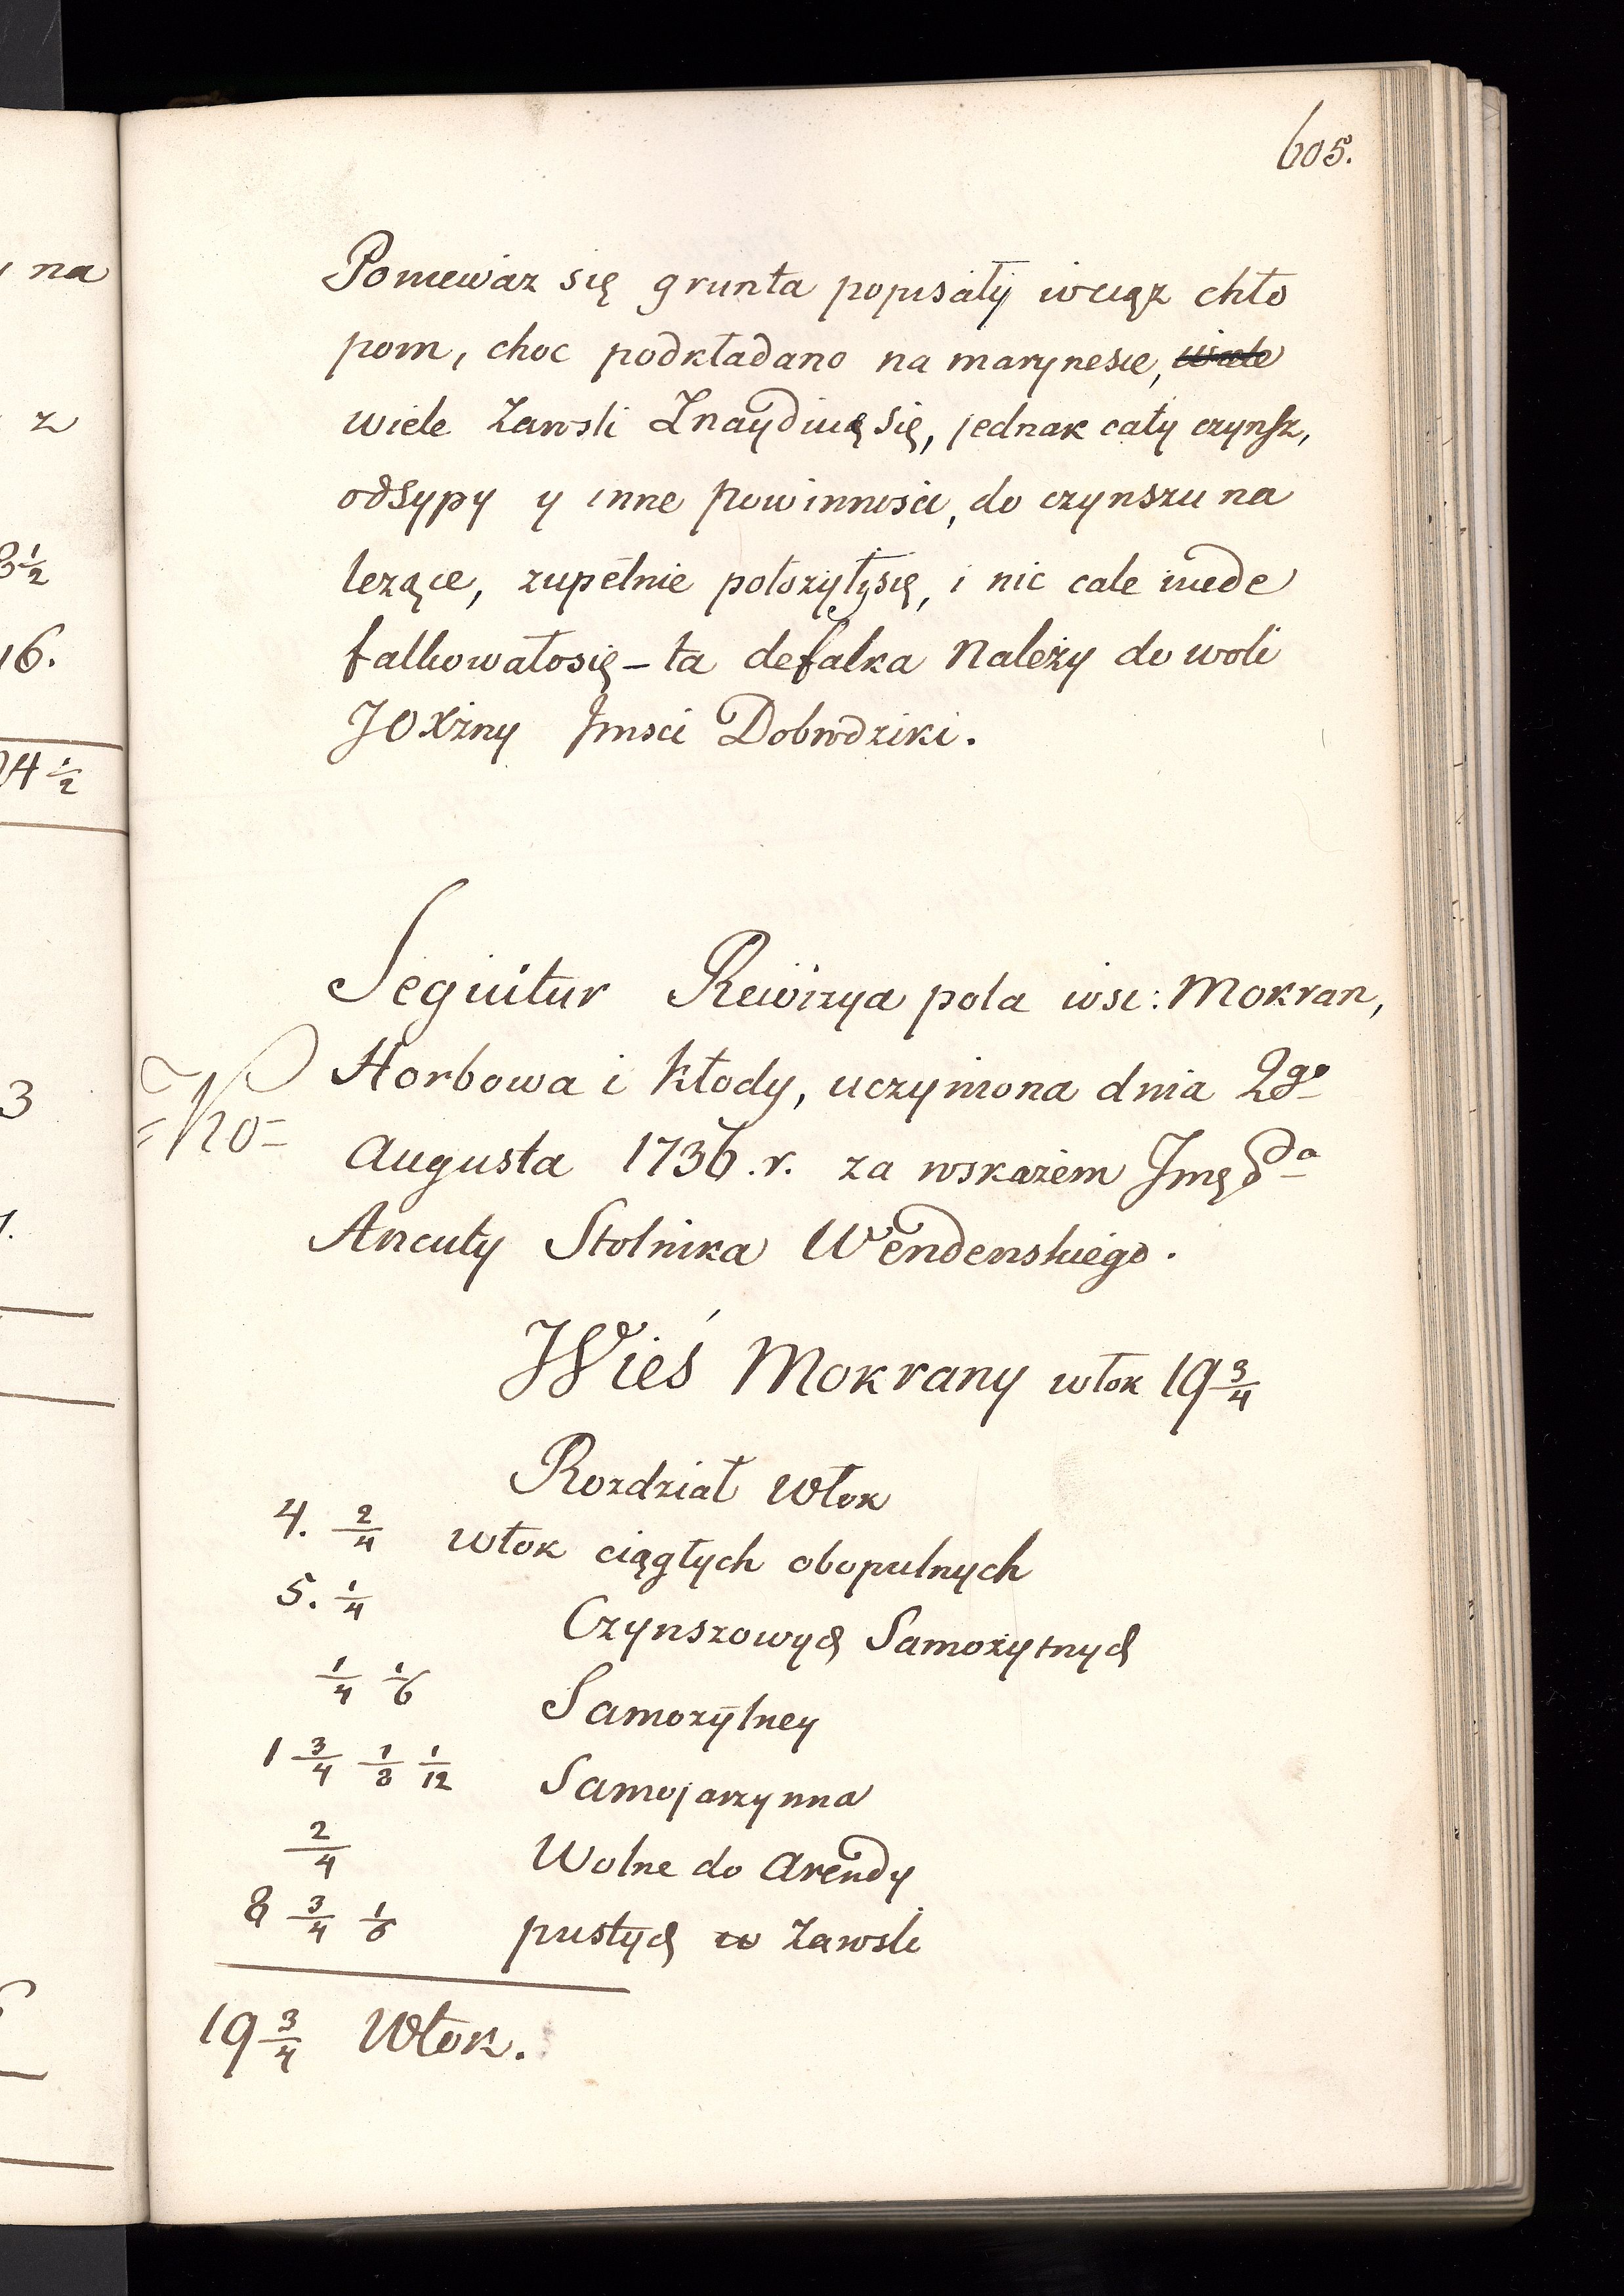 605.
Poniewaz się grunta popisały wciąz chło
pom, choc podkładano na marynesie,
wiele Zawsli Znaydiuę się, jednak cały czynsz,
odsypy y inne powinnosci, do czynszu na
lezące, zupełnie położyłysię, i nic cale niede
falkowałosię – ta defalka Należy do woli
JOXżny Jmsci Dobrodziki.
Seguitur Rewizya pola wsi: Mokran,
Horbowa i Kłody, uczyniona dnia 2go
Augusta 1736.r. za wskazem Jmę
Ancuty Stolnika Wendenskiego.
Wieś Mokrany włok 19 3/4
Rozdział Włok
4. 2/4 włok ciągłych obopulnych
5. 1/4 Czynszowych Samożytnych
1/4 1/6 Samożytney
1 3/4 1/8 1/12 Samojarzynna
2/4 Wolne do Arendy
8 3/4 1/6 pustych w Zawsli
19 3/4 Włok.
na
z
3 1/2
16.
4 1/2
3